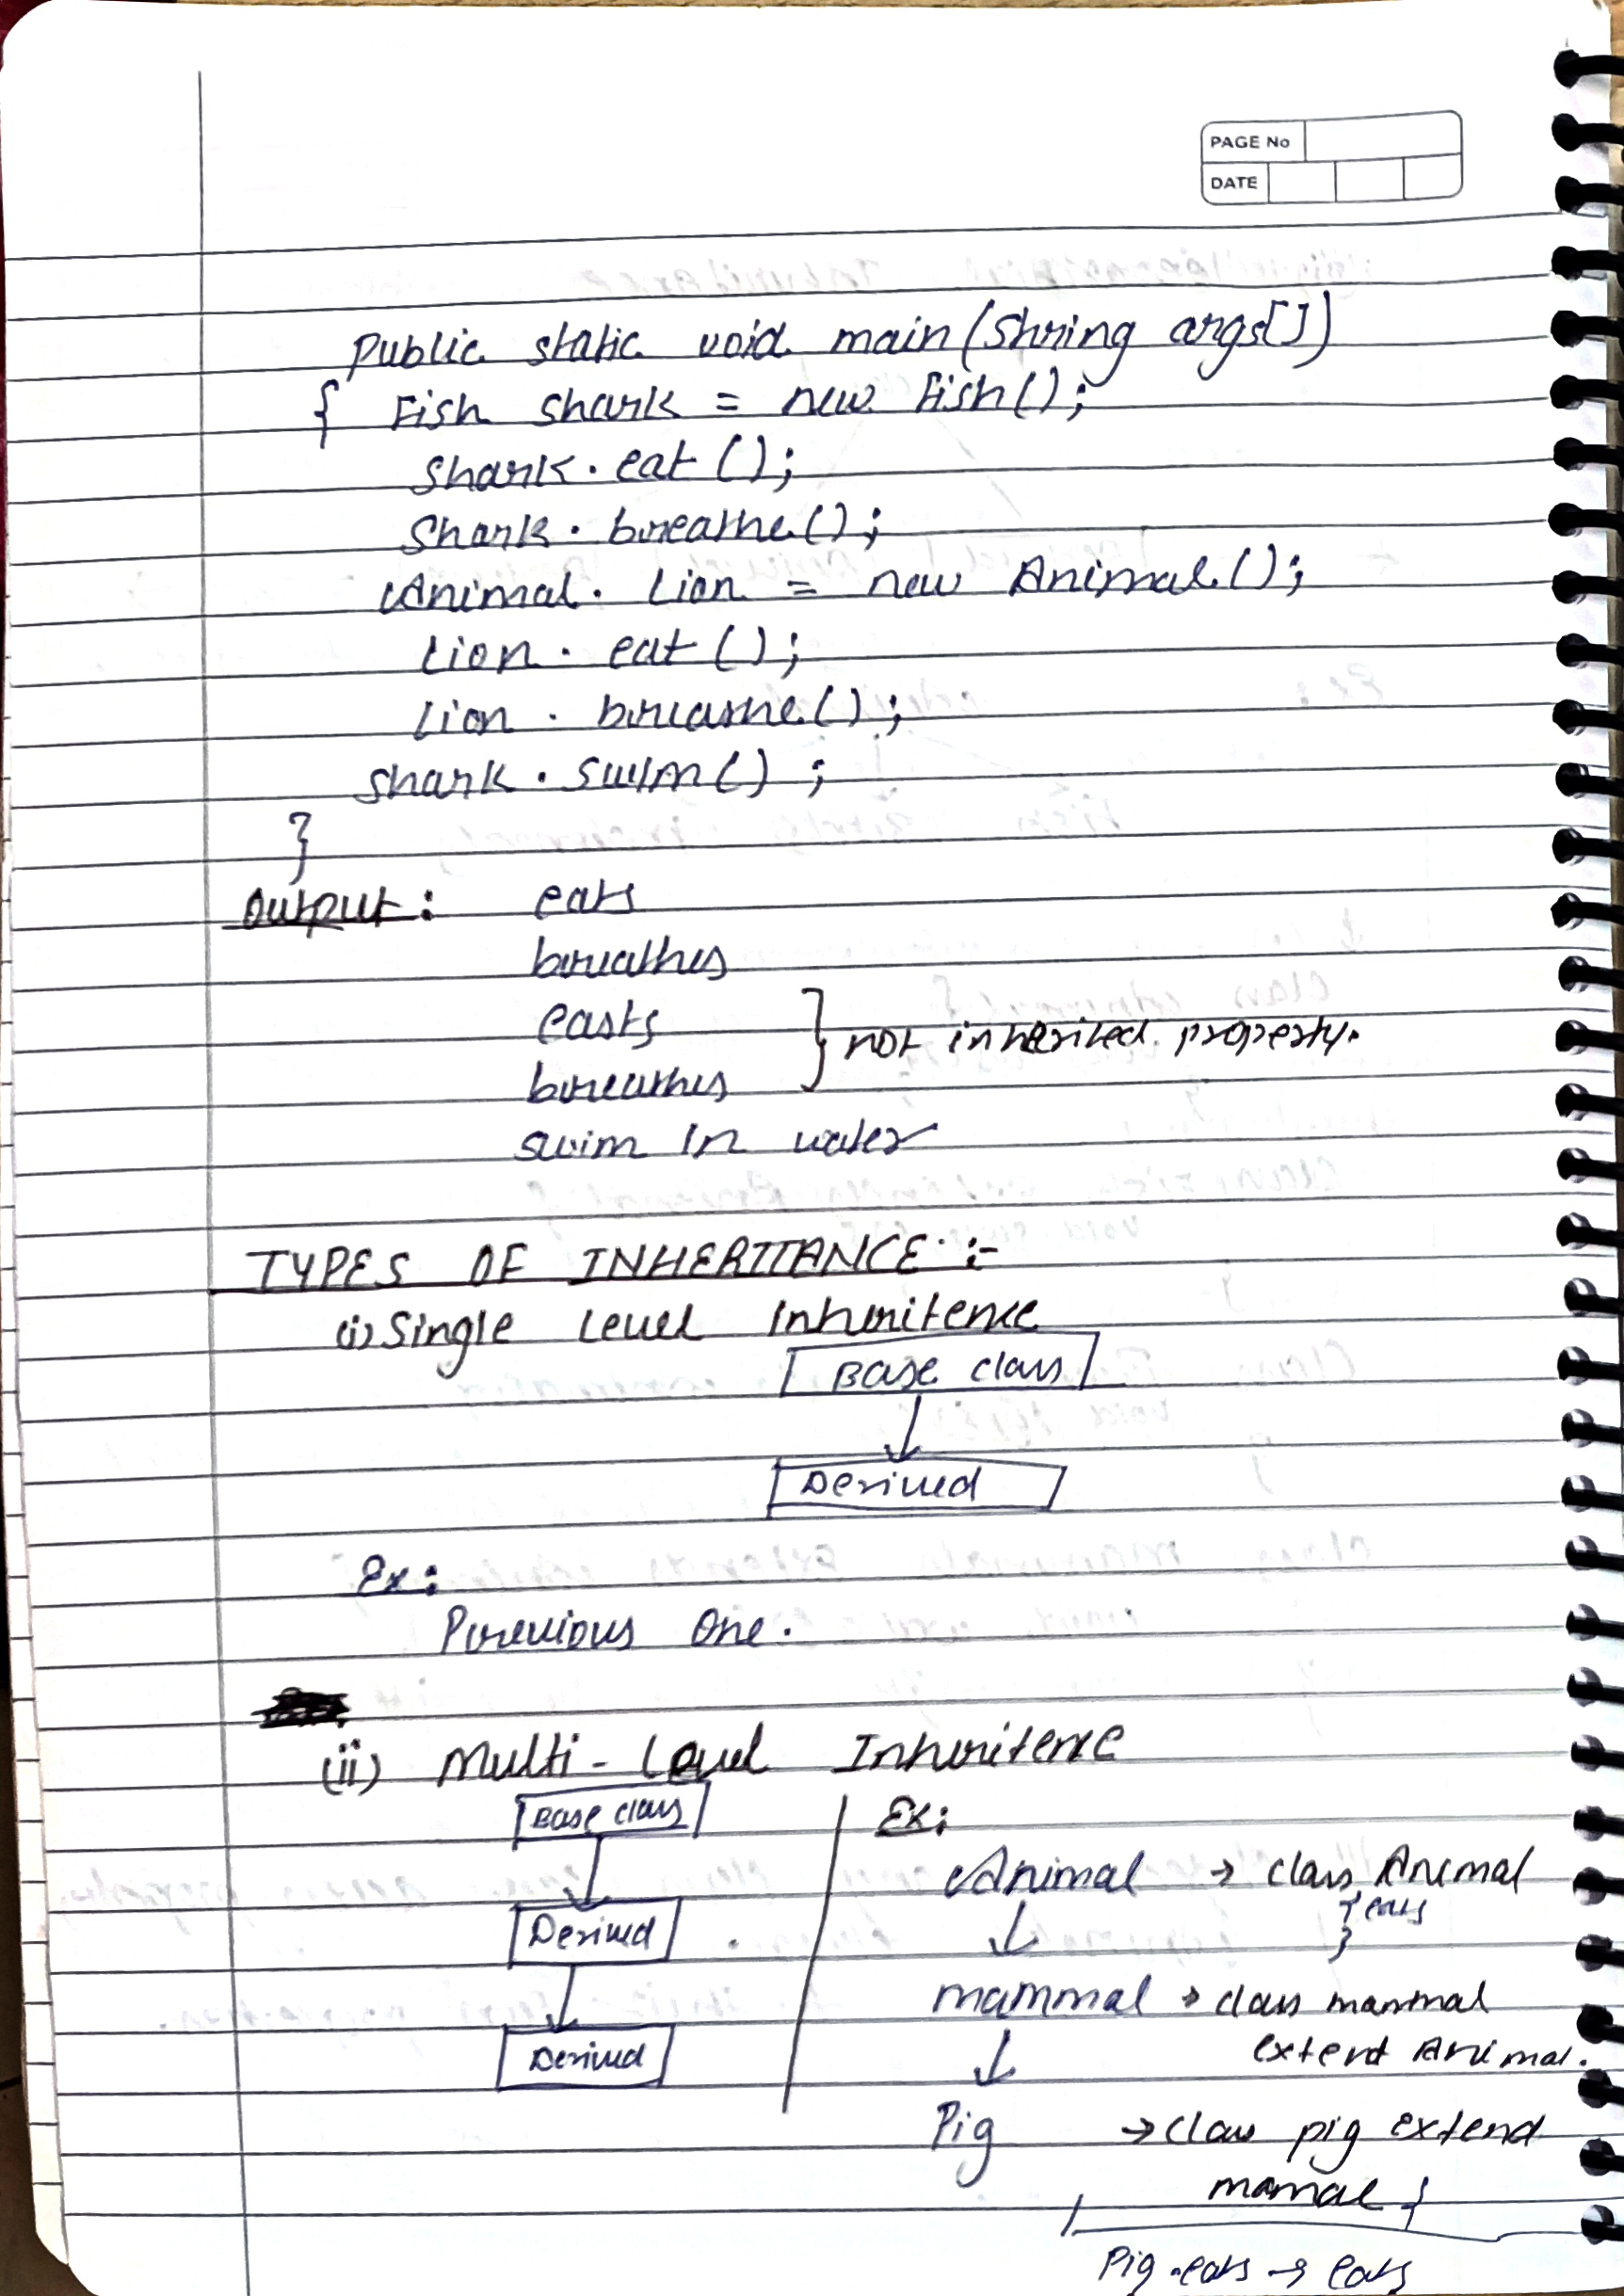 PAGE No
DATE
Public static void main(String args[])
{ Fish shark = new Fish();
shark.eat();
Shark.breathe();
Animal. Lion = new Animal();
Lion.eat();
Lion.breathe();
shark.swim();
}
Output: eats
breathes
easts
breathes } not inherited property.
swim in water
TYPES OF INHERITANCE :-
(i) Single Level Inheritence
Base class
Derived
Ex:
Previous One.
(ii) Multi-Level Inheritence
Base class
Derived
Derived
Ex:
Animal → class Animal
{ eats
}
mammal → class mammal
extend Animal.
Pig → class pig extend
mamal {
Pig.eats → eats